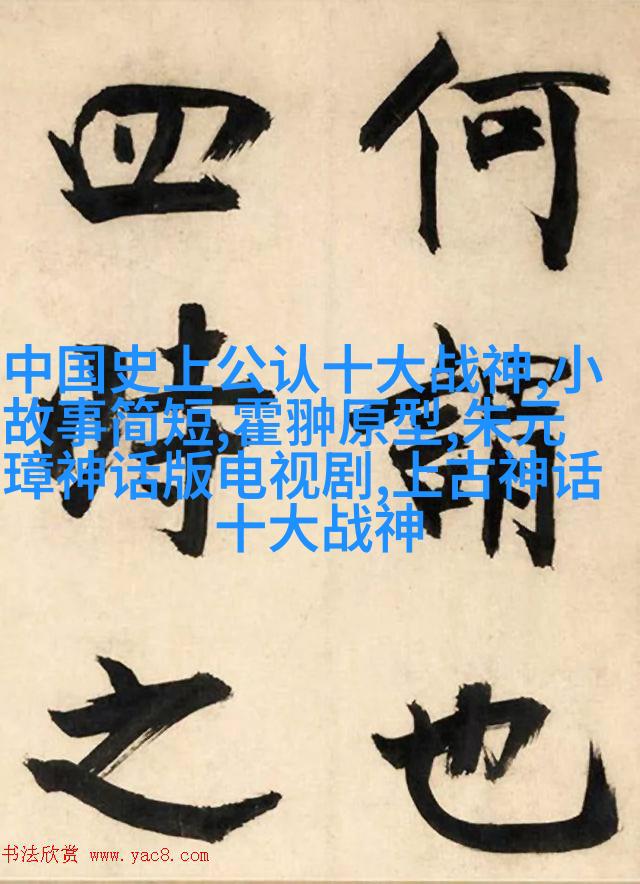 何謂也
四時之
中国史上公认十大战神,小
故事简短,霍翀原型,朱元
璋神话版电视剧,上古神话
十大战神
书法欣赏 www.yac8.com